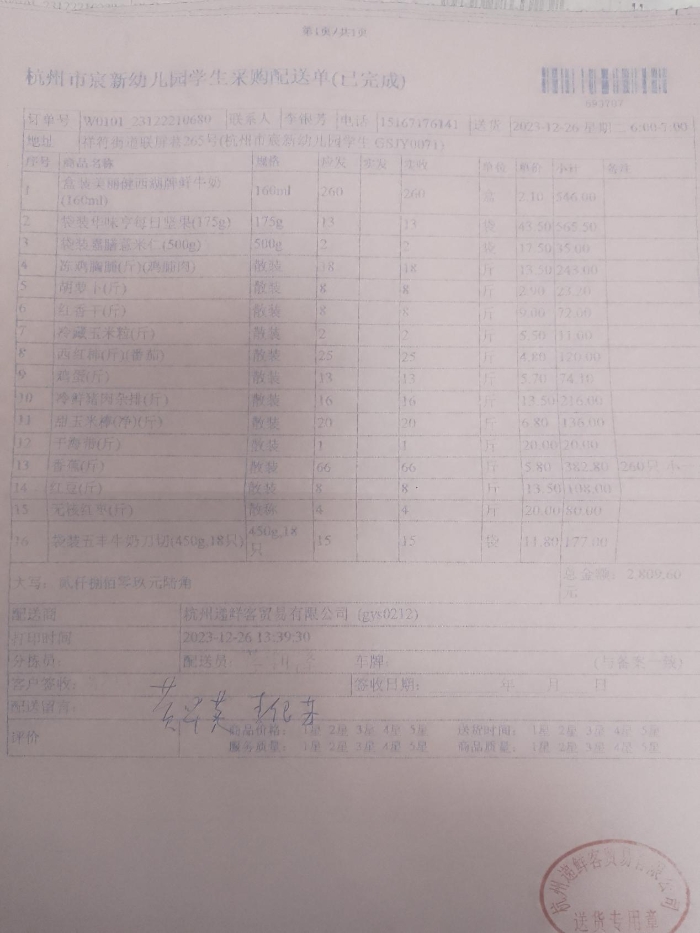 第1页/共1页
杭州市宸新幼儿园学生采购配送单(已完成)
693707
订单号 W0101-23122210680 联系人 李银芳 电话 15167176141 送货 2023-12-26 星期二 6:00-7:00
地址 祥符街道 265号(杭州市宸新幼儿园学生 GSJY0071)
序号 商品名称 规格 应发 实发 实收 单位 单价 小计 备注
1 盒装美丽健西湖牌鲜牛奶(160ml) 160ml 260 260 盒 2.10 546.00
2 袋装华味亨每日坚果(175g) 175g 13 13 袋 43.50 565.50
3 袋装 薏米仁(500g) 500g 2 2 袋 17.50 35.00
4 冻鸡胸脯(斤)(鸡脯肉) 散装 18 18 斤 13.50 243.00
5 胡萝卜(斤) 散装 8 8 斤 2.90 23.20
6 红香干(斤) 散装 8 8 斤 9.00 72.00
7 冷藏玉米粒(斤) 散装 2 2 斤 5.50 11.00
8 西红柿(斤)(番茄) 散装 25 25 斤 4.80 120.00
9 鸡蛋(斤) 散装 13 13 斤 5.70 74.10
10 冷鲜猪肉杂排(斤) 散装 16 16 斤 13.50 216.00
11 甜玉米棒(净)(斤) 散装 20 20 斤 6.80 136.00
12 干海带(斤) 散装 1 1 斤 20.00 20.00
13 香蕉(斤) 散装 66 66 斤 5.80 382.80 260只
14 红豆(斤) 散装 8 8 斤 13.50 108.00
15 无核红枣(斤) 散称 4 4 斤 20.00 80.00
16 袋装五丰牛奶刀切(450g,18只) 450g,18只 15 15 袋 11.80 177.00
大写: 贰仟捌佰零玖元陆角 总金额: 2,809.60元
配送商 杭州逸鲜客贸易有限公司 (gys0212)
打印时间 2023-12-26 13:39:30
分拣员: 配送员: 车牌: (与备案一致)
客户签收: 签收日期: 年 月 日
配送留言:
评价 商品价格: 1星 2星 3星 4星 5星 送货时间: 1星 2星 3星 4星 5星
服务质量: 1星 2星 3星 4星 5星 商品质量: 1星 2星 3星 4星 5星
杭州逸鲜客贸易有限公司
送货专用章